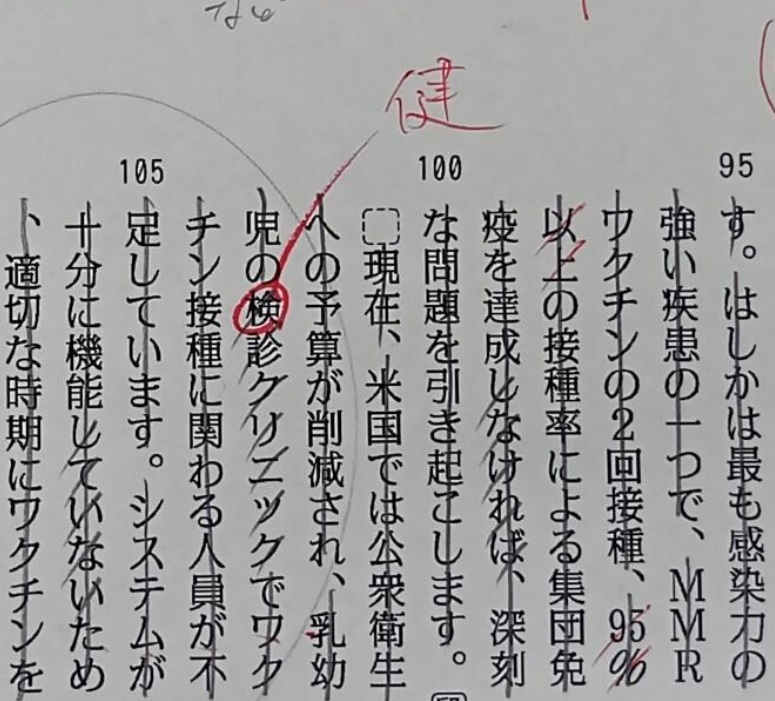 な
健
95
す。はしかは最も感染力の
強い疾患の一つで、MMR
ワクチンの2回接種、95%
以上の接種率による集団免
疫を達成しなければ、深刻
100
な問題を引き起こします。
現在、米国では公衆衛生
への予算が削減され、乳幼
児の検診クリニックでワク
チン接種に関わる人員が不
105
足しています。システムが
十分に機能していないため
、適切な時期にワクチンを